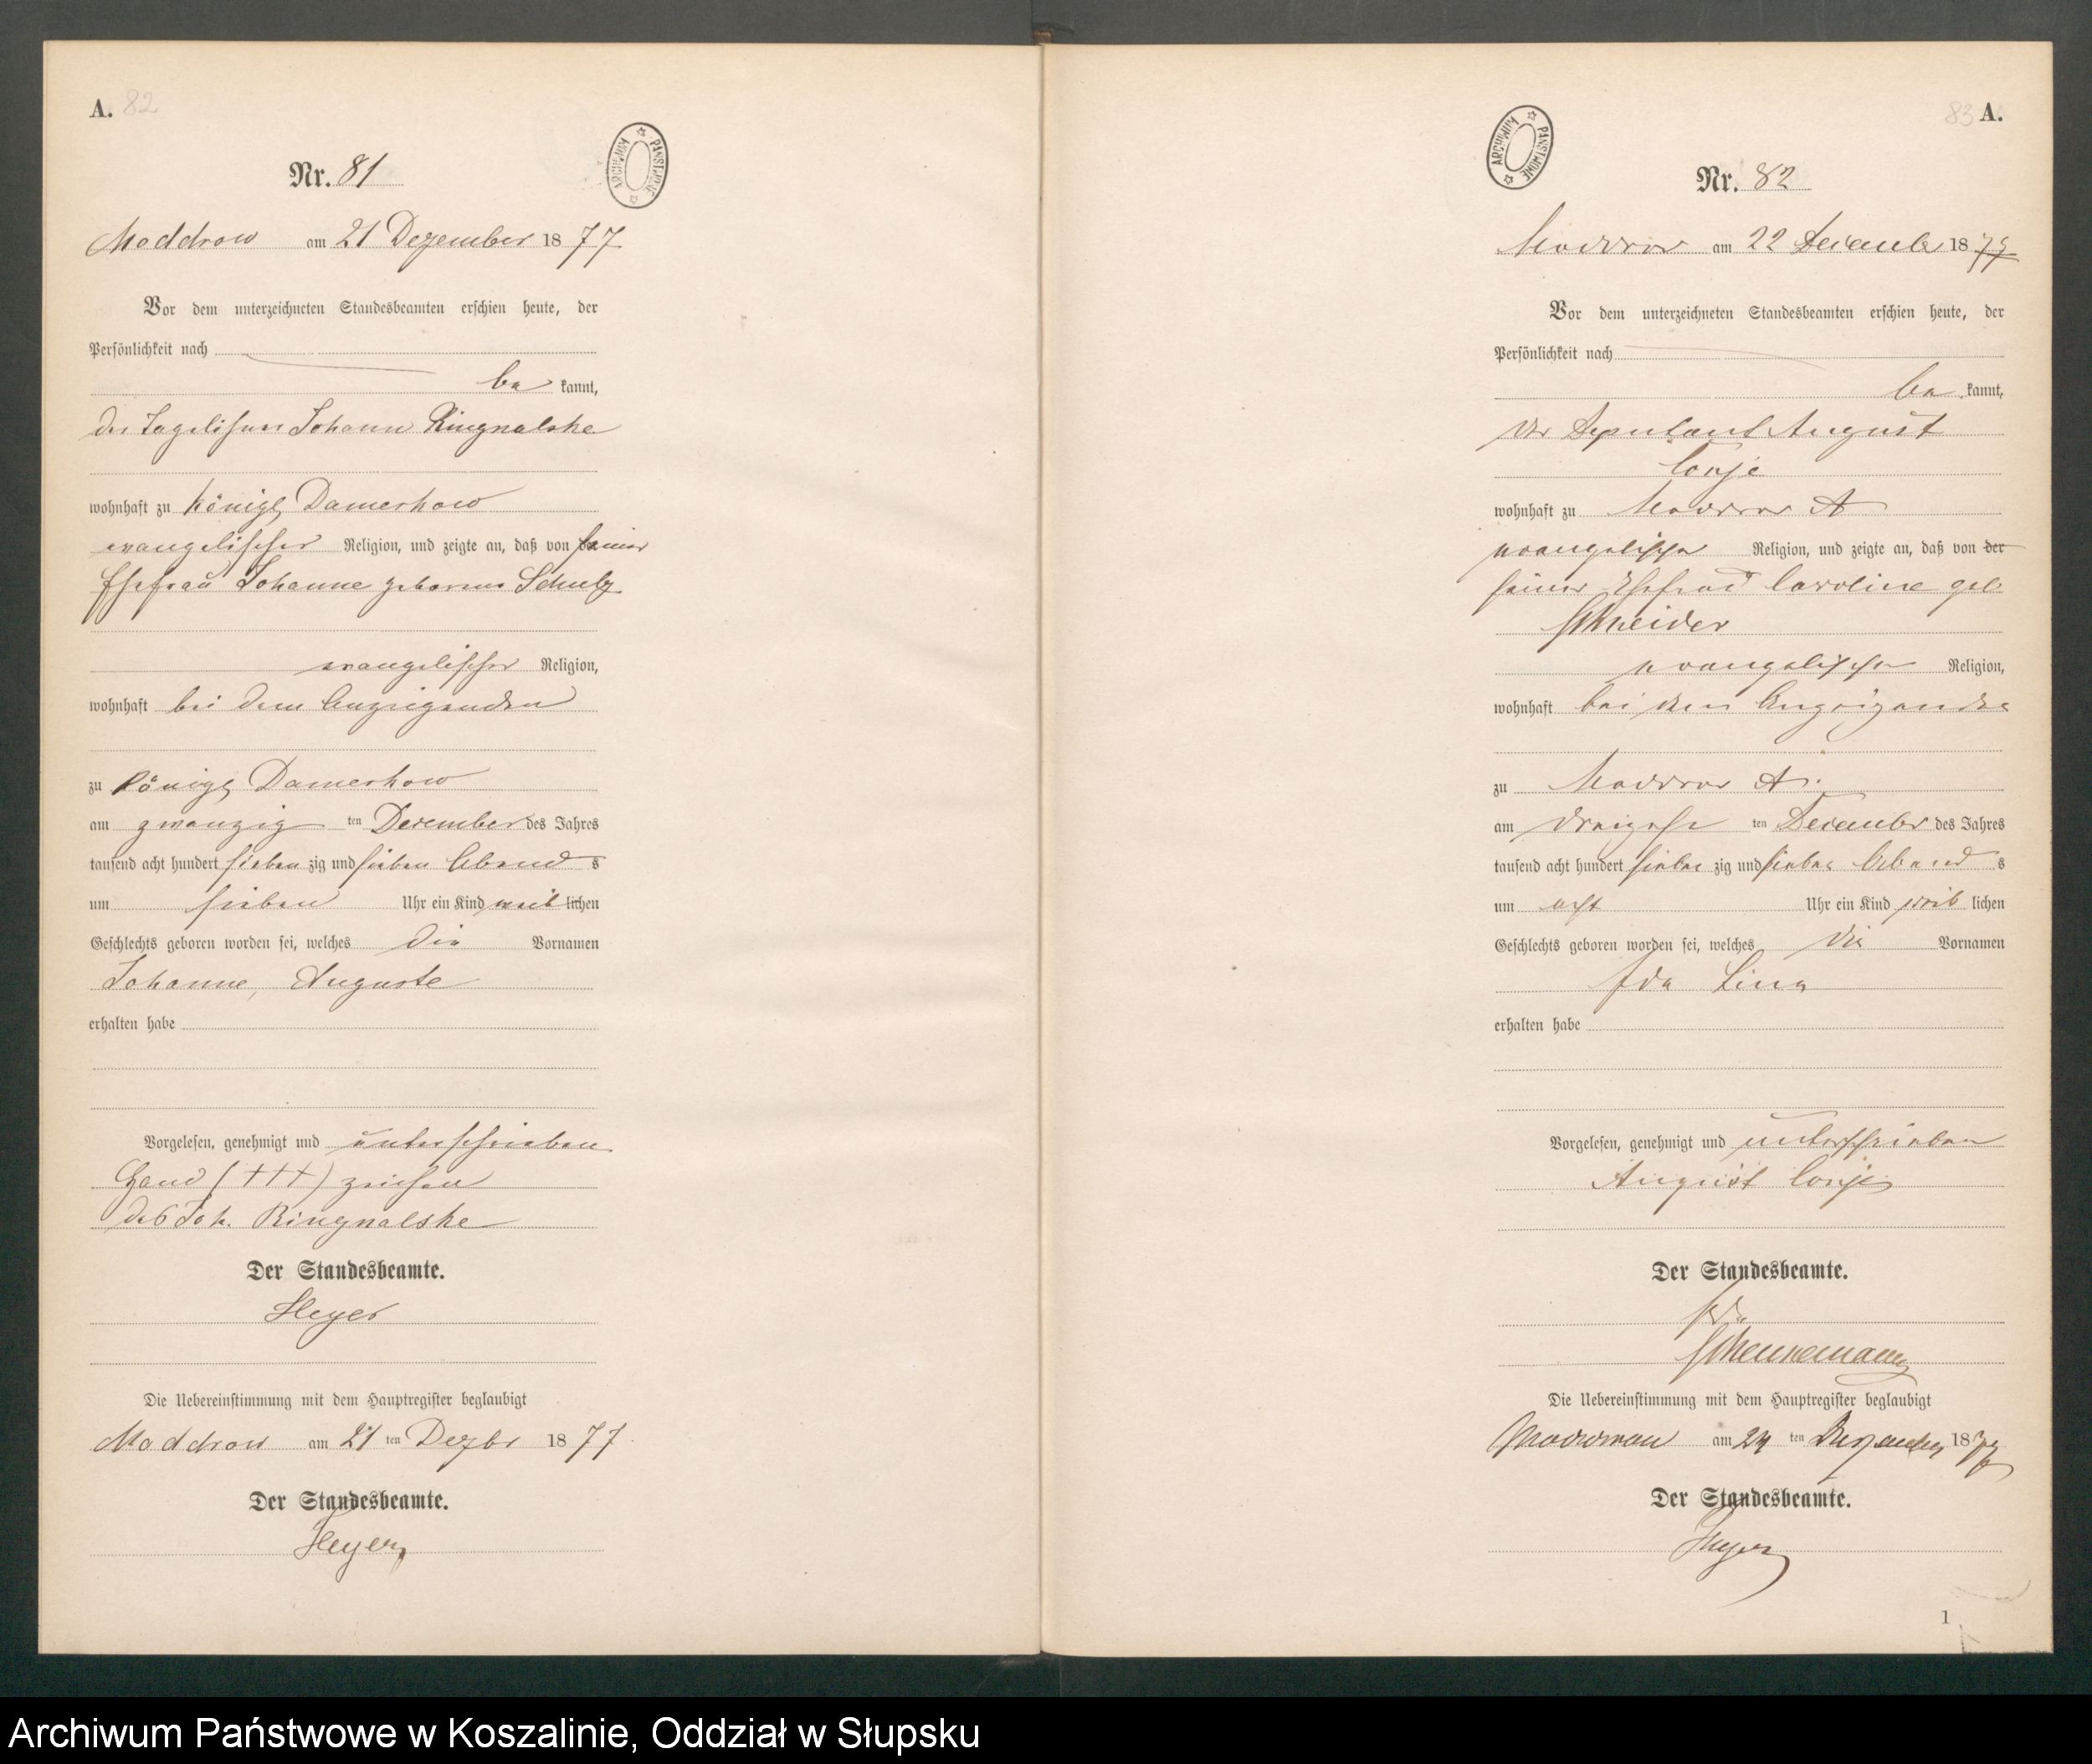 A. 82
Nr. 81
ARCHIWUM PAŃSTWOWE
Moddrow am 21 Dezember 1877
Vor dem unterzeichneten Standesbeamten erschien heute, der
Persönlichkeit nach
be kannt,
der Tagelöhner Johann Ringnalske
wohnhaft zu Königl Damerkow
evangelischer Religion, und zeigte an, daß von seiner
Ehefrau Johanne geborene Schulz
evangelischer Religion,
wohnhaft bei dem Anzeigenden
zu Königl Damerkow
am zwanzig ten Dezember des Jahres
tausend acht hundert sieben zig und sieben Abend s
um sieben Uhr ein Kind weib lichen
Geschlechts geboren worden sei, welches die Vornamen
Johanne, Auguste
erhalten habe
Vorgelesen, genehmigt und unterschrieben
Hand (+++) zeichen
des Joh. Ringnalske
Der Standesbeamte.
Heyer
Die Uebereinstimmung mit dem Hauptregister beglaubigt
Moddrow am 21 ten Dezbr 1877
Der Standesbeamte.
Heyer
83 A.
ARCHIWUM PAŃSTWOWE
Nr. 82
Moddrow am 22 December 1877
Vor dem unterzeichneten Standesbeamten erschien heute, der
Persönlichkeit nach
be kannt,
der Deputant August
Conje
wohnhaft zu Moddrow A
evangelischer Religion, und zeigte an, daß von der
seiner Ehefrau Caroline geb
Schneider
evangelischer Religion,
wohnhaft bei dem Anzeigenden
zu Moddrow A.
am ten December des Jahres
tausend acht hundert sieben zig und sieben Abend s
um acht Uhr ein Kind weib lichen
Geschlechts geboren worden sei, welches die Vornamen
Ida Lina
erhalten habe
Vorgelesen, genehmigt und unterschrieben
August Conje
Der Standesbeamte.
Schünemann
Die Uebereinstimmung mit dem Hauptregister beglaubigt
Moddrow am 24 ten Dezember 1877
Der Standesbeamte.
Heyer
1
Archiwum Państwowe w Koszalinie, Oddział w Słupsku